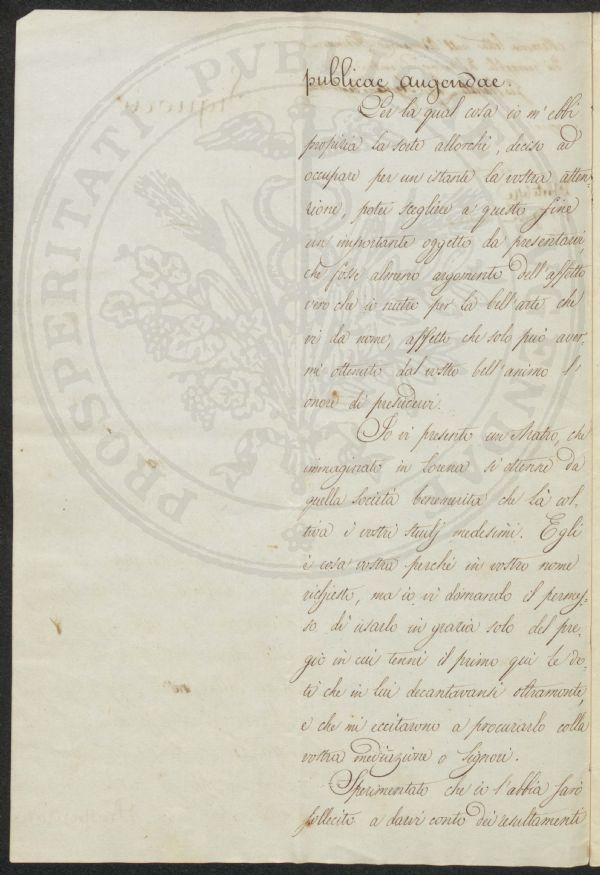 publicae augendae.
Per la qual cosa io m'ebbi
propizia la sorte allorchè, deciso ad
occupare per un istante la vostra atten-
zione, potei scegliere a questo fine
un importante oggetto da presentarvi,
che fosse almeno argomento dell'affetto
vero che io nutro per la bell'arte che
vi dà nome, affetto che solo può aver-
mi ottenuto dal vostro bell'animo l'
onore di presiedervi.
Io vi presento un Aratro, che
immaginato in Lorena si ottenne da
quella società benemerita che là col-
tiva i vostri studj medesimi. Egli
è cosa vostra perchè in vostro nome
richiesto, ma io vi domando il permes-
so di usarlo in grazia solo del pre-
gio in cui tenni il primo qui le do-
ti che in lui decantavansi oltramonte,
e che mi eccitarono a procurarlo colla
vostra mediazione o Signori.
Sperimentato che io l'abbia sarò
sollecito a darvi conto dei resultamenti
PROSPERITATI PVBLICAE AVGENDAE